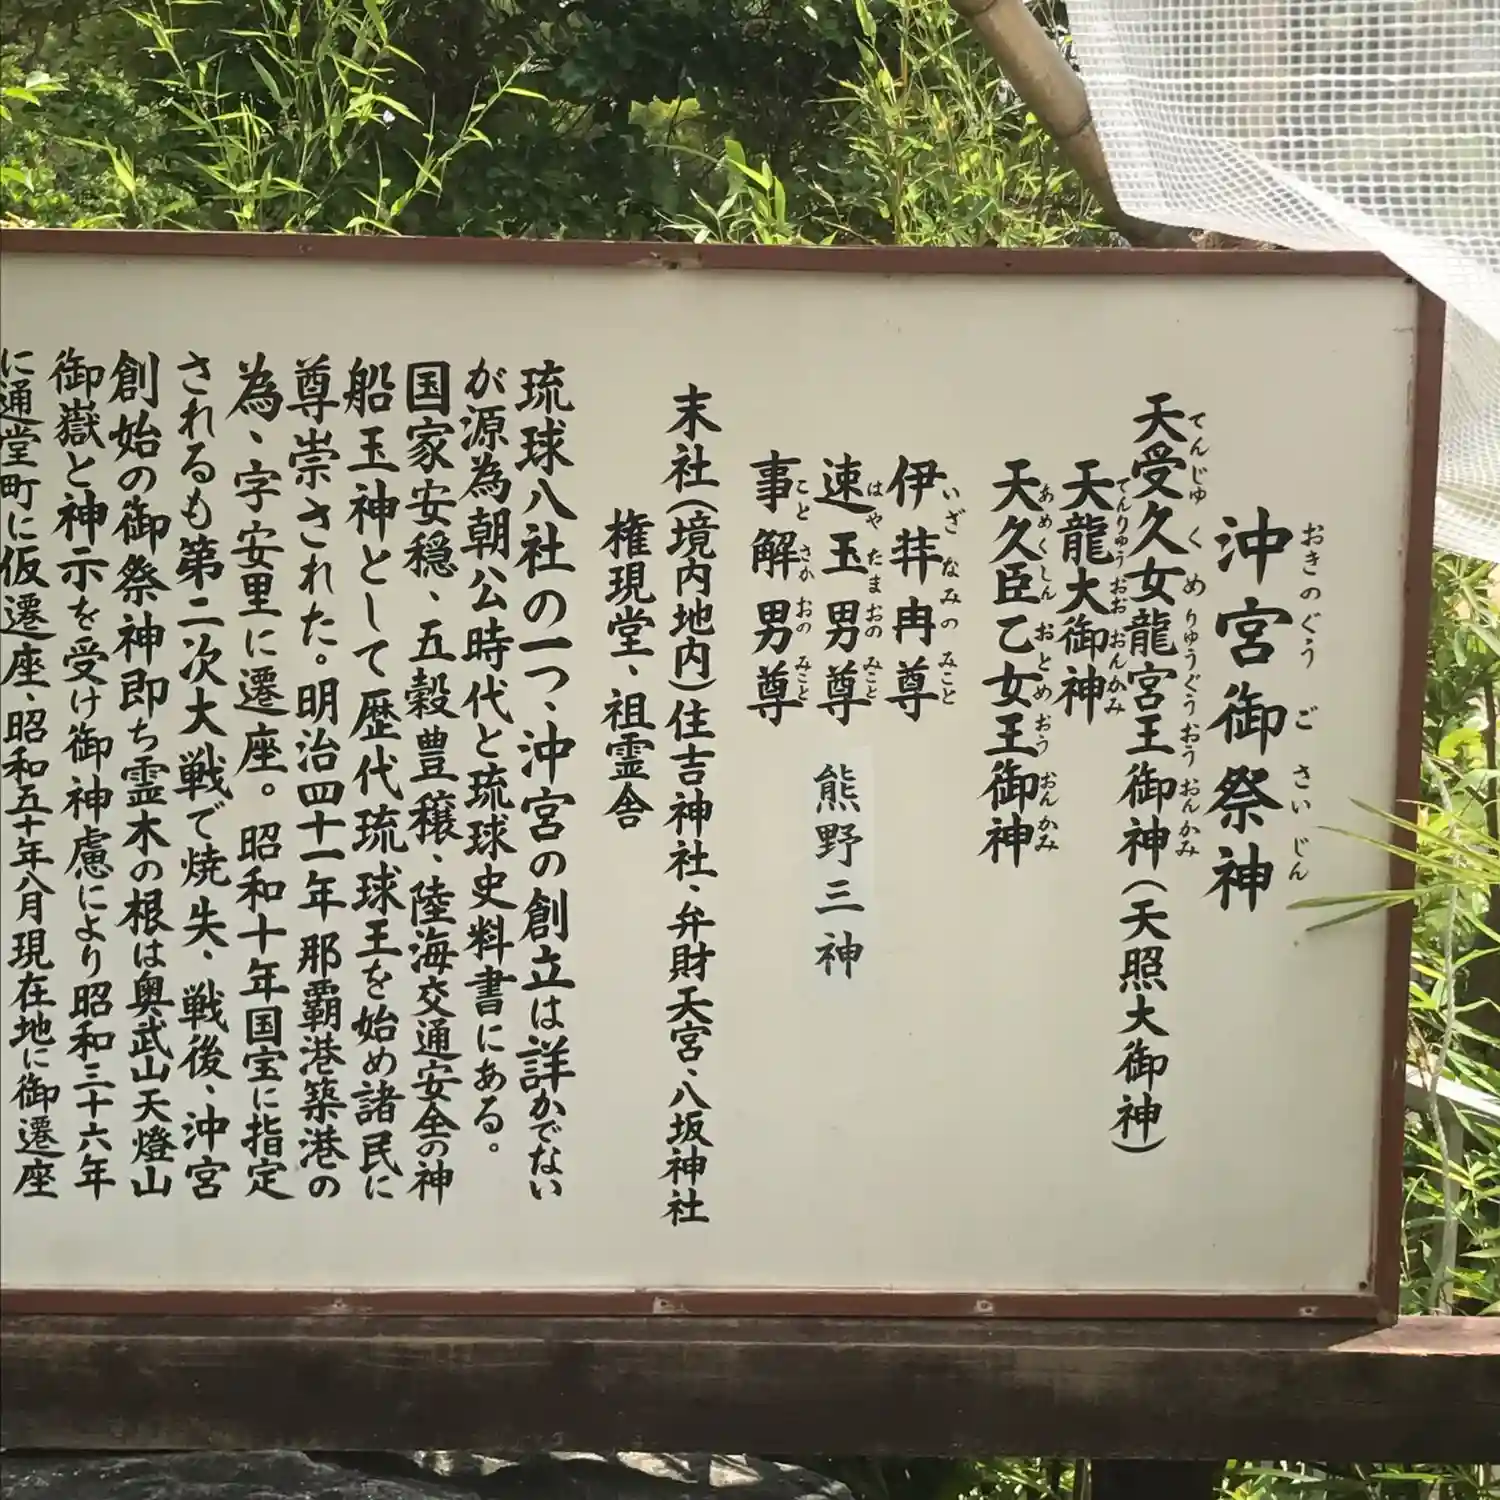 沖宮御祭神
おきのぐう ご さい じん
天受久女龍宮王御神(天照大御神)
てんじゅ くめ りゅうぐうおうおんかみ
天龍大御神
てんりゅうおおおんかみ
天久臣乙女王御神
あめくしん おとめおう おんかみ
伊弉冉尊
いざなみのみこと
速玉男尊 熊野三神
はやたまおのみこと
事解男尊
ことさかおのみこと
末社(境内地内)住吉神社、弁財天宮、八坂神社
権現堂、祖霊舎
琉球八社の一つ、沖宮の創立は詳かでない
が源為朝公時代と琉球史料書にある。
国家安穏、五穀豊穣、陸海交通安全の神
船玉神として歴代琉球王を始め諸民に
尊崇された。明治四十一年那覇港築港の
為、字安里に遷座。昭和十年国宝に指定
されるも第二次大戦で焼失、戦後、沖宮
創始の御祭神即ち霊木の根は奥武山天燈山
御嶽と神示を受け御神慮により昭和三十六年
に通堂町に仮遷座、昭和五十年八月現在地に御遷座